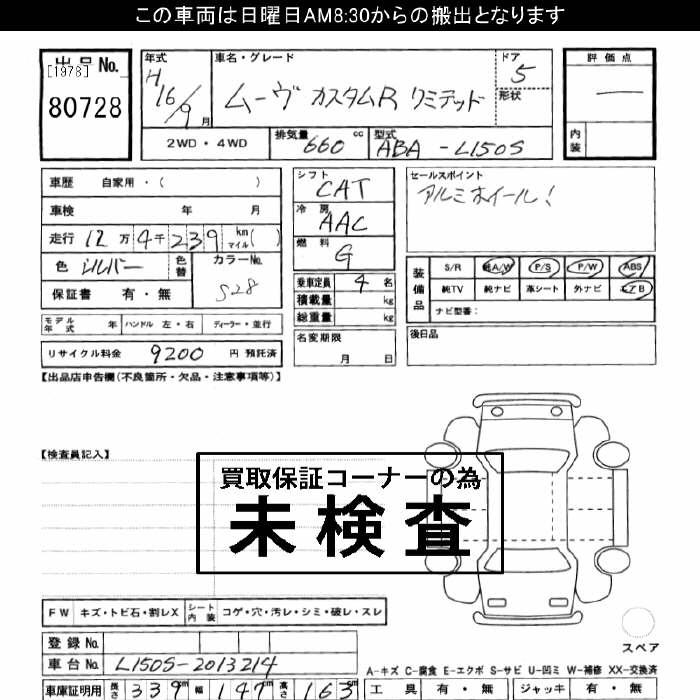 この車両は日曜日AM8:30からの搬出となります
出品No.
[1978]
80728
年式 H16/9月
車名・グレード ムーヴ カスタムR リミテッド
ドア 5
形状
評価点 ―
内装
2WD・4WD
排気量 660 cc
型式 ABA-L150S
車歴 自家用・( )
車検 年 月
走行 12万4千239 km マイル( )
色 シルバー 色替 カラーNo. S28
保証書 有・無
シフト CAT
冷房 AAC
燃料 G
乗車定員 4名
積載量 kg
総重量 kg
セールスポイント
アルミホイール!
装備品 S/R 純A/W P/S P/W ABS
純TV 純ナビ 革シート 外ナビ エアB
ナビ型番:
モデル年式 年 ハンドル 左・右 ディーラー・並行
名変期限 月 日
後日品
リサイクル料金 9200 円 預託済
【出品店申告欄(不良箇所・欠品・注意事項等)】
【検査員記入】
買取保証コーナーの為
未検査
FW キズ・トビ石・割レX シート内装 コゲ・穴・汚レ・シミ・破レ・スレ
登録No.
車台No. L150S-2013214
スペア
A-キズ C-腐食 E-エクボ S-サビ U-凹ミ W-補修 XX-交換済
車庫証明用 長さ 339cm 幅 147cm 高さ 163cm
工具 有・無 ジャッキ 有・無